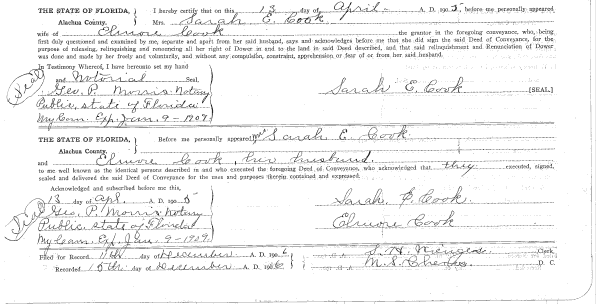 THE STATE OF FLORIDA, } I hereby certify that on this 13 day of April A. D. 1905, before me personally appeared
Alachua County. Mrs. Sarah E. Cook
wife of Elmore Cook the grantor in the foregoing conveyance, who, being
first duly questioned and examined by me, separate and apart from her said husband, says and acknowledges before me that she did sign the said Deed of Conveyance, for the
purpose of releasing, relinquishing and renouncing all her right of Dower in and to the land in said Deed described, and that said relinquishment and Renunciation of Dower
was done and made by her freely and voluntarily, and without any compulsion, constraint, apprehension or fear of or from her said husband.
In Testimony Whereof, I have hereunto set my hand
and Notorial Seal,
Seal
Geo. P. Morris Notary
Public, state of Florida
My Com. Exp. Jan. 9-1909.
Sarah E. Cook [SEAL]
THE STATE OF FLORIDA, } Before me personally appeared Mrs Sarah E. Cook
Alachua County.
and Elmore Cook, her husband,
to me well known as the identical persons described in and who executed the foregoing Deed of Conveyance, who acknowledged that they executed, signed,
sealed and delivered the said Deed of Conveyance for the uses and purposes therein contained and expressed.
Acknowledged and subscribed before me this,
13 day of Apl. A. D. 1905
Seal
Geo. P. Morris Notary
Public, state of Florida
My Com. Exp. Jan. 9-1909.
Sarah E. Cook
Elmore Cook
Filed for Record 11th day of December A. D. 1906
Recorded 15th day of December A. D. 1906
S. H. Wienges Clerk,
M. S. D. C.